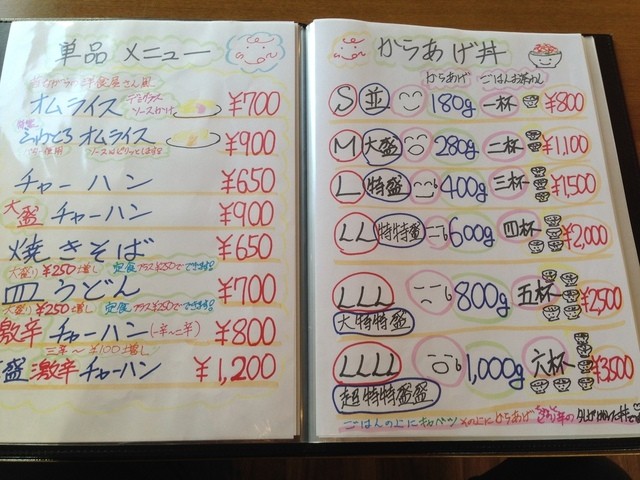 単品 メニュー
昔ながらの洋食屋さん風
オムライス デミグラスソースかけ ¥700
ふわとろ オムライス ¥900
チャーハン ¥650
大盛 チャーハン ¥900
焼きそば ¥650
大盛り¥250増し 定食プラス¥250でできます
皿うどん ¥700
大盛り¥250増し 定食プラス¥250でできます
激辛 チャーハン(一辛〜二辛) ¥800
三辛〜¥100増し
盛 激辛 チャーハン ¥1,200
からあげ丼
からあげ ごはんお茶わん
S 並 180g 一杯 ¥800
M 大盛 280g 二杯 ¥1,100
L 特盛 400g 三杯 ¥1,500
LL 特特盛 600g 四杯 ¥2,000
LLL 800g 五杯 ¥2,500
大特特盛
LLLL 1,000g 六杯 ¥3,500
超特特盛盛
ごはんの上にキャベツ その上にからあげ